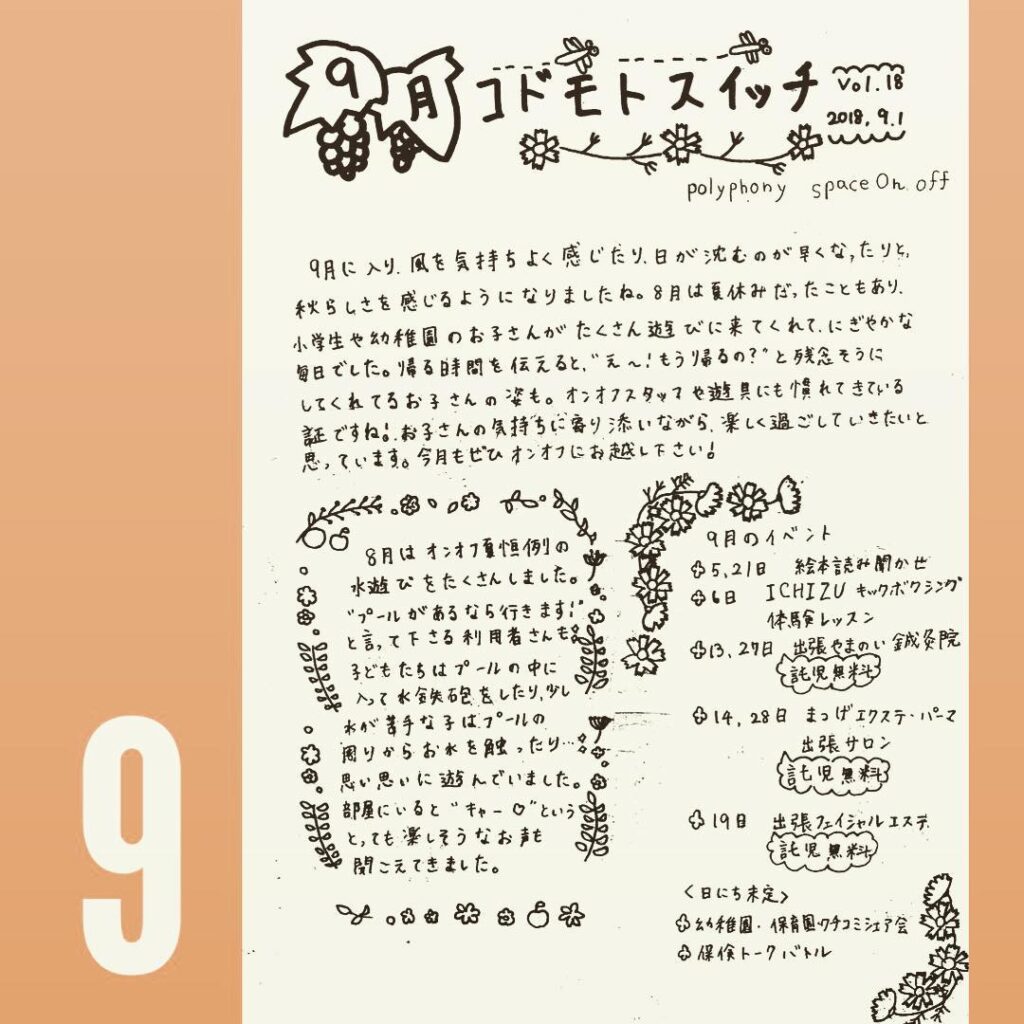 9月 コドモトスイッチ
Vol.18
2018.9.1
polyphony space On off
9月に入り、風を気持ちよく感じたり、日が沈むのが早くなったりと、
秋らしさを感じるようになりましたね。8月は夏休みだったこともあり、
小学生や幼稚園のお子さんがたくさん遊びに来てくれて、にぎやかな
毎日でした。帰る時間を伝えると、"え〜!もう帰るの?"と残念そうに
してくれてるお子さんの姿も。オンオフスタッフや遊具にも慣れてきている
証ですね!お子さんの気持ちに寄り添いながら、楽しく過ごしていきたいと
思っています。今月もぜひオンオフにお越し下さい!
8月はオンオフ夏恒例の
水遊びをたくさんしました。
"プールがあるなら行きます!"
と言って下さる利用者さんも
子どもたちはプールの中に
入って水鉄砲をしたり、少し
水が苦手な子はプールの
周りからお水を触ったり…
思い思いに遊んでいました。
部屋にいると"キャー♡"という
とっても楽しそうなお声も
聞こえてきました。
9月のイベント
5,21日 絵本読み聞かせ
6日 ICHIZU キックボクシング
体験レッスン
13,27日 出張やまのい鍼灸院
託児無料
14,28日 まつげエクステ・パーマ
出張サロン
託児無料
19日 出張フェイシャルエステ
託児無料
<日にち未定>
幼稚園・保育園クチコミシェア会
保険トークバトル
9